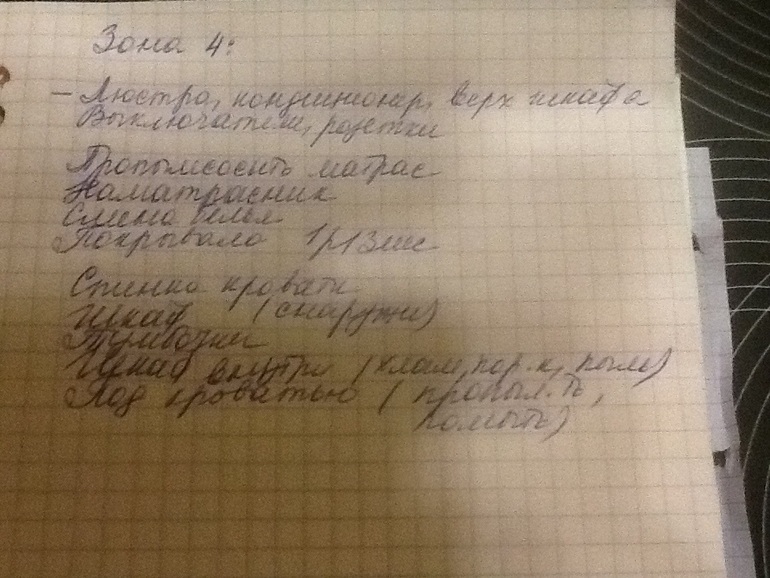 Зона 4:
– Люстра, кондиционер, верх шкафа
Выключатели, розетки
Пропылесосить матрас
Наматрасник
Смена белья
Покрывало 1р/3мес
Спинка кровати
Шкаф (снаружи)
Тумбочки
Шкаф внутри (хлам, пор-к, пыль)
Под кроватью (пропыл-ть,
помыть)